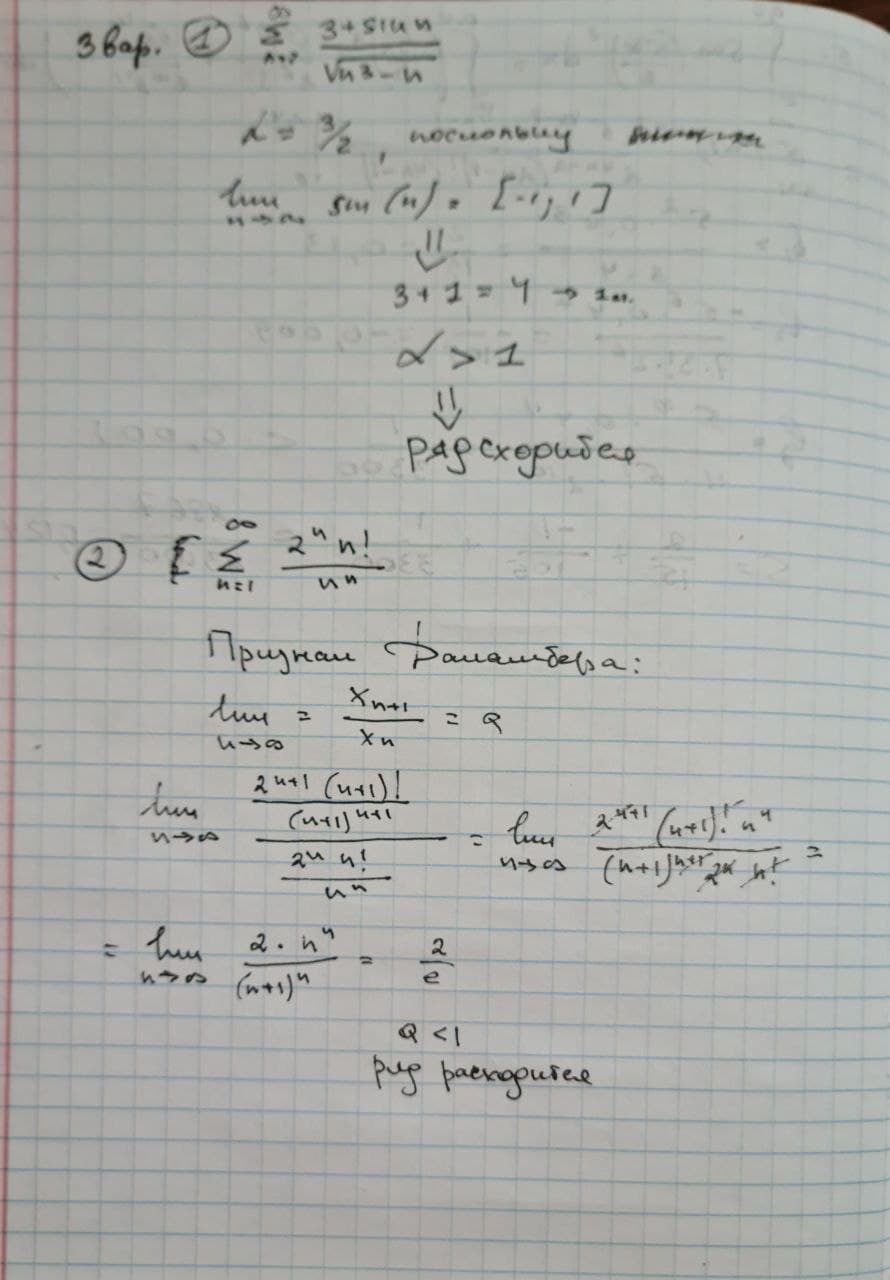 3 вар. ① ∞ Σ n=2 (3 + sin n) / √(n³ - n)
α = 3/2, поскольку
lim n→∞ sin(n) = [-1; 1]
⇓
3 + 1 = 4 →
α > 1
⇓
ряд сходится
② ∞ Σ n=1 (2ⁿ n!) / nⁿ
Признак Даламбера:
lim n→∞ = xₙ₊₁ / xₙ = Q
lim n→∞ (2ⁿ⁺¹ (n+1)! / (n+1)ⁿ⁺¹) / (2ⁿ n! / nⁿ) = lim n→∞ (2ⁿ⁺¹ (n+1)! nⁿ) / ((n+1)ⁿ⁺¹ 2ⁿ n!) =
= lim n→∞ (2 · nⁿ) / (n+1)ⁿ = 2 / e
Q < 1
ряд расходится